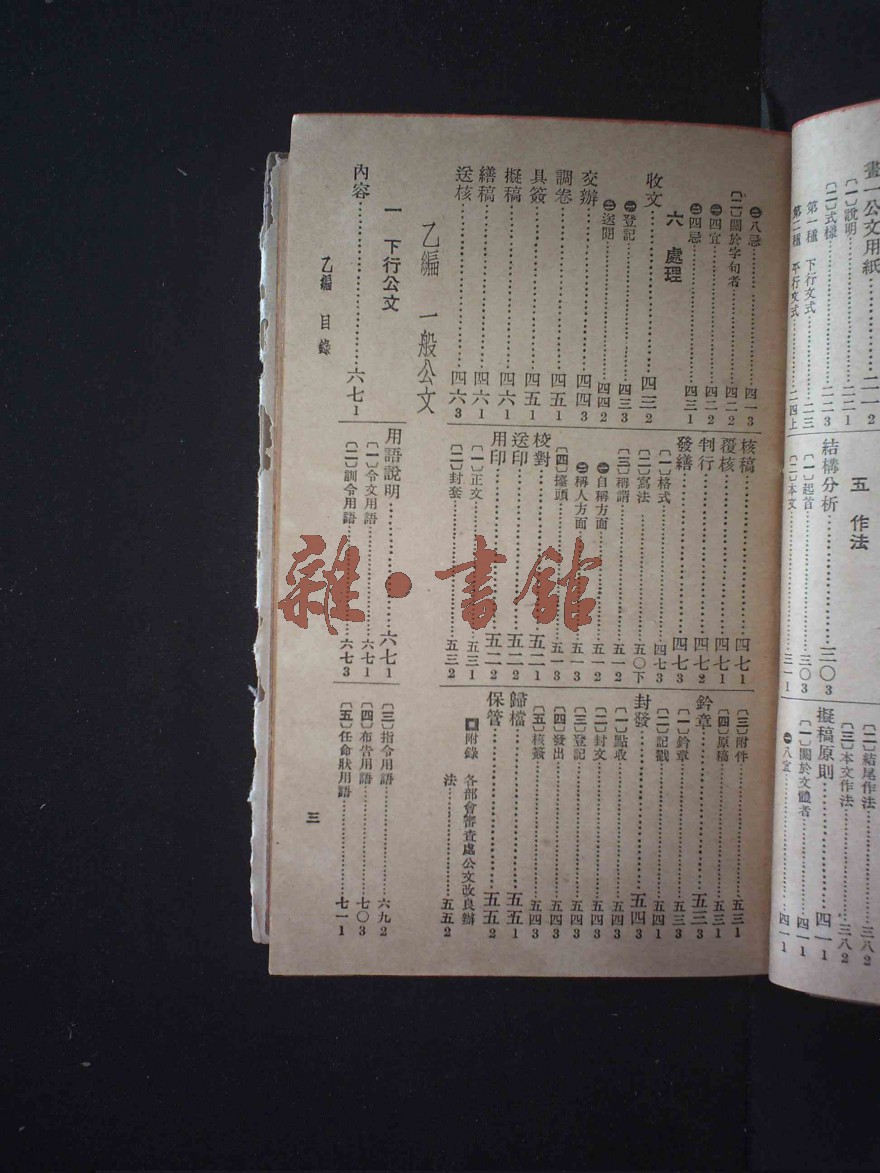 畫一公文用紙……二一2
〔一〕說明……二二1
〔二〕式樣……二二3
第一種 下行文式……二三
第二種 平行文式……二四上
五 作法
結構分析……三〇3
〔一〕起首……三〇3
〔二〕本文……三一1
〔二〕結尾作法……三八2
〔三〕本文作法……三八2
擬稿原則……四一1
〔一〕關於文體者……四一1
㊀八宜……四一1
㊁八忌……四一3
〔二〕關於字句者……四二2
㊀四宜……四二2
㊁四忌……四三1
六 處理
收文……四三2
㊀登記……四三3
㊁送閱……四四2
交辦……四四3
調卷……四五1
具簽……四五1
擬稿……四六1
繕稿……四六1
送核……四六3
核稿……四七1
覆核……四七1
判行……四七2
發繕……四七3
〔一〕格式……四七3
〔二〕寫法……五〇下
〔三〕稱謂……五一2
㊀自稱方面……五一2
㊁稱人方面……五一3
〔四〕擡頭……五一3
校對……五二1
送印……五二2
用印……五二2
〔一〕正文……五三1
〔二〕封套……五三2
〔三〕附件……五三1
〔四〕原稿……五三1
鈐章……五三3
〔一〕鈐章……五三3
〔二〕記戳……五四1
封發……五四3
〔一〕點收……五四3
〔二〕封文……五四3
〔三〕登記……五四3
〔四〕發出……五四3
〔五〕核簽……五四3
歸檔……五五1
保管……五五2
附錄 各部會審查處公文改良辦
法……五五2
乙編 一般公文
一 下行公文
內容……六七1
用語說明……六七1
〔一〕令文用語……六七1
〔二〕訓令用語……六七3
〔三〕指令用語……六九2
〔四〕布告用語……七〇3
〔五〕任命狀用語……七一1
乙編 目錄
三
雜·書館